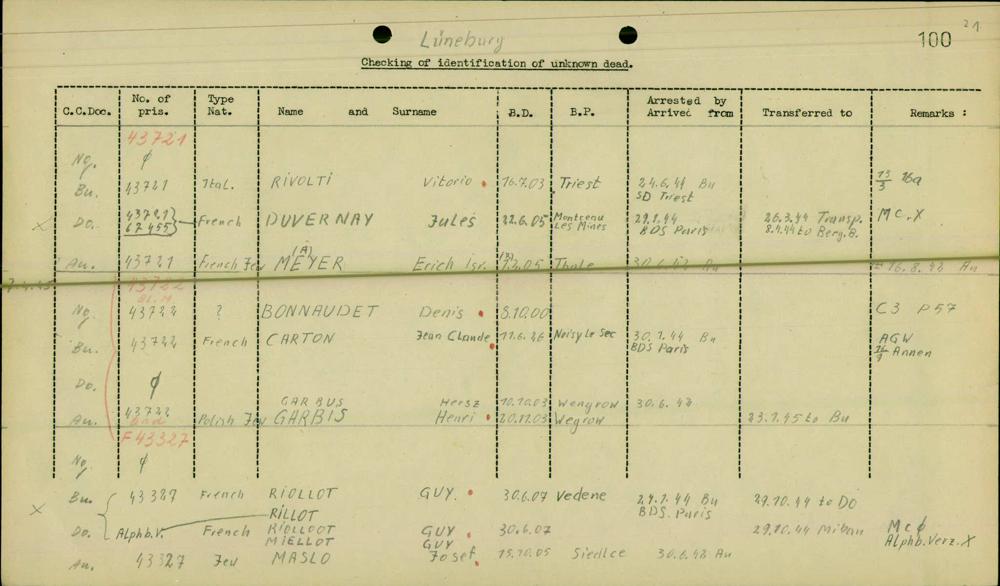 21
Lünebury 100
Checking of identification of unknown dead.
C.C.Doc. No. of pris. Type Nat. Name and Surname B.D. B.P. Arrested by Arrived from Transferred to Remarks :
43721
Ng. ∅
Bu. 43721 Ital. RIVOLTI Vitorio 16.7.03 Triest 24.6.44 Bu
SD Triest
x Do. 43721 French DUVERNAY Jules 22.6.05 Montceau 29.1.44 26.3.44 Transp. Mc.X
67455 Les Mines BDS Paris 8.4.44 to Berg.B.
(A)
Au. 43721 French Jew MEYER Erich Isr. Thale Au
43722
Ng. 43722 ? BONNAUDET Denis 8.10.00 C3 P57
Bu. 43722 French CARTON Jean Claude 11.6.26 Noisy le Sec 30.1.44 Bu AGW
BDS Paris Annen
Do. ∅
GARBUS Hersz 10.10.03 Wengrow 30.6.43
Au. 43722 Polish Jew GARBIS Henri 20.11.03 Wegrow 23.1.45 to Bu
F 43327
Ng. ∅
x Bu. 43327 French RIOLLOT GUY. 30.6.07 Vedene 29.1.44 Bu 29.10.44 to DO
RILLOT BDS. Paris
Do. Alphb.V. French RIOLLOOT GUY 30.6.07 29.10.44 Mc ∅
MIELLOT GUY Alphb. Verz. X
Au. 43327 Jew MASLO Josef 15.10.05 Siedlce 30.6.43 Au